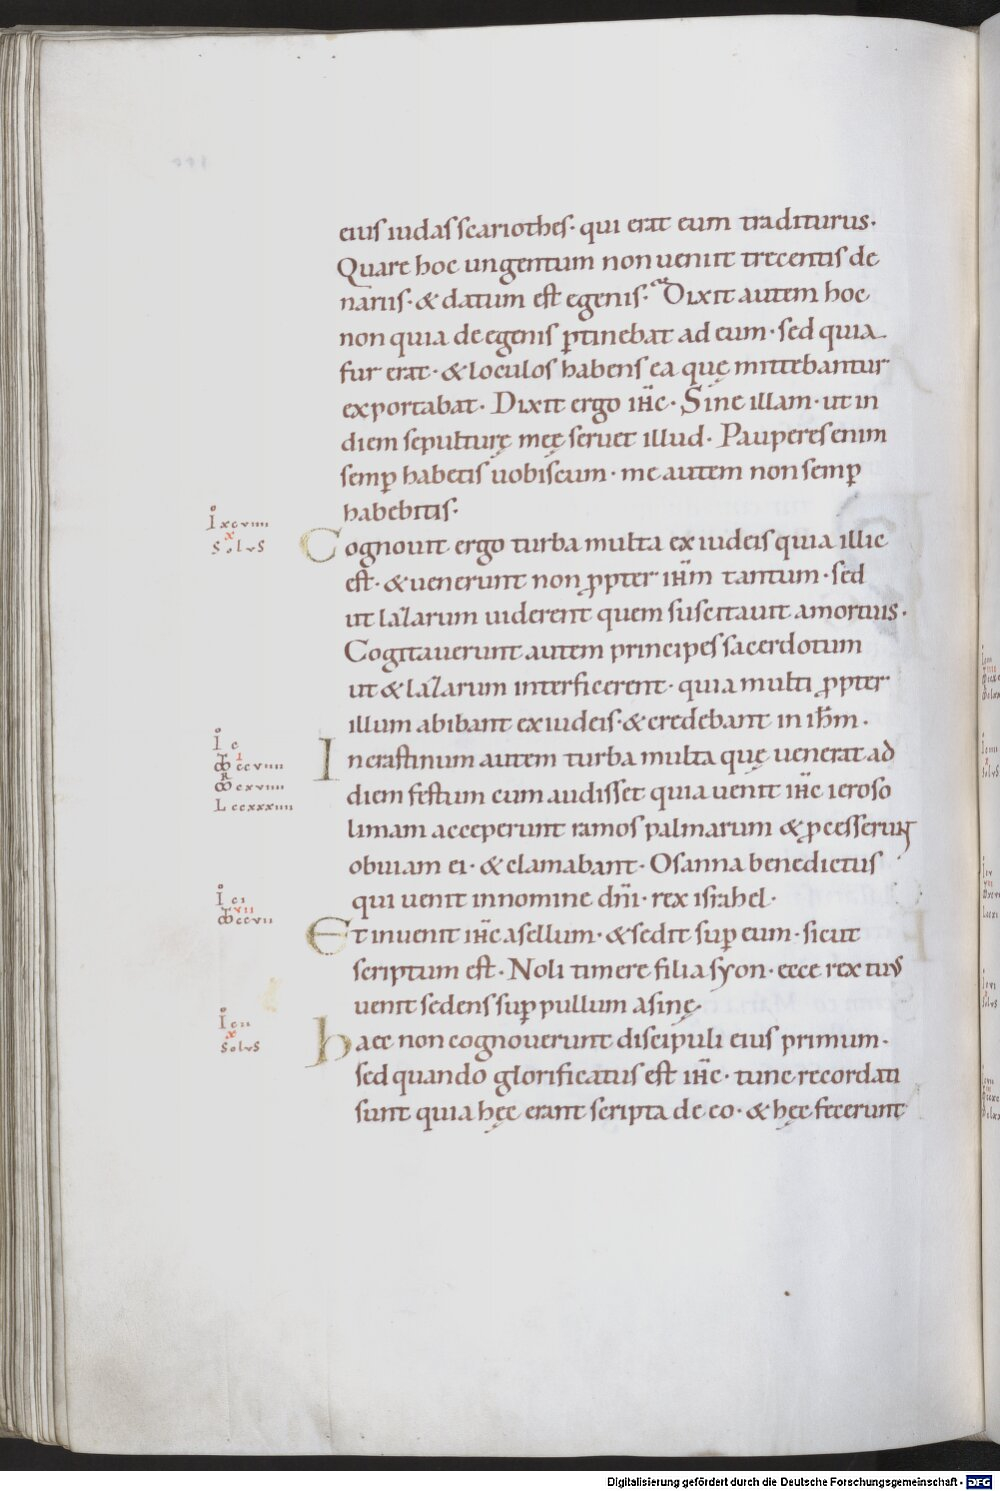 eius iudas scariothes· qui erat eum traditurus·
Quare hoc ungentum non ueniit trecentis de
nariis· & datum est egenis· Dixit autem hoc
non quia de egenis ꝑtinebat ad eum· sed quia
fur erat· & loculos habens ea quę mittebantur
exportabat· Dixit ergo ihc̄· Sine illam· ut in
diem sepulturę meę seruet illud· Pauperes enim
semꝑ habetis uobiscum· me autem non semꝑ
habebitis·
Cognouit ergo turba multa ex iudeis quia illic
est· & uenerunt non ꝓpter ihm̄ tantum· sed
ut lazarum uiderent quem suscitauit amortuis·
Cogitauerunt autem principes sacerdotum
ut & lazarum interficerent· quia multi ꝓpter
illum abibant ex iudeis· & credebant in ihm̄·
In crastinum autem turba multa quę uenerat ad
diem festum cum audisset quia uenit ihc̄ ieroso
limam acceperunt ramos palmarum & ꝓcesserunt
obuiam ei· & clamabant· Osanna benedictus
qui uenit innomine dm̄i· rex israhel·
Et inuenit ihc̄ asellum· & sedit suꝑ eum· sicut
scriptum est· Noli timere filia syon· ecce rex tuus
uenit sedens suꝑ pullum asinę·
haec non cognouerunt discipuli eius primum·
sed quando glorificatus est ihc̄· tunc recordati
sunt quia hęc erant scripta de eo· & hęc fecerunt
Io xcviiii
x
Solus
Io c
I
ccviiii
cxviiii
L ccxxxiiii
Io ci
vii
ccvii
Io cii
x
Solus
Digitalisierung gefördert durch die Deutsche Forschungsgemeinschaft - DFG